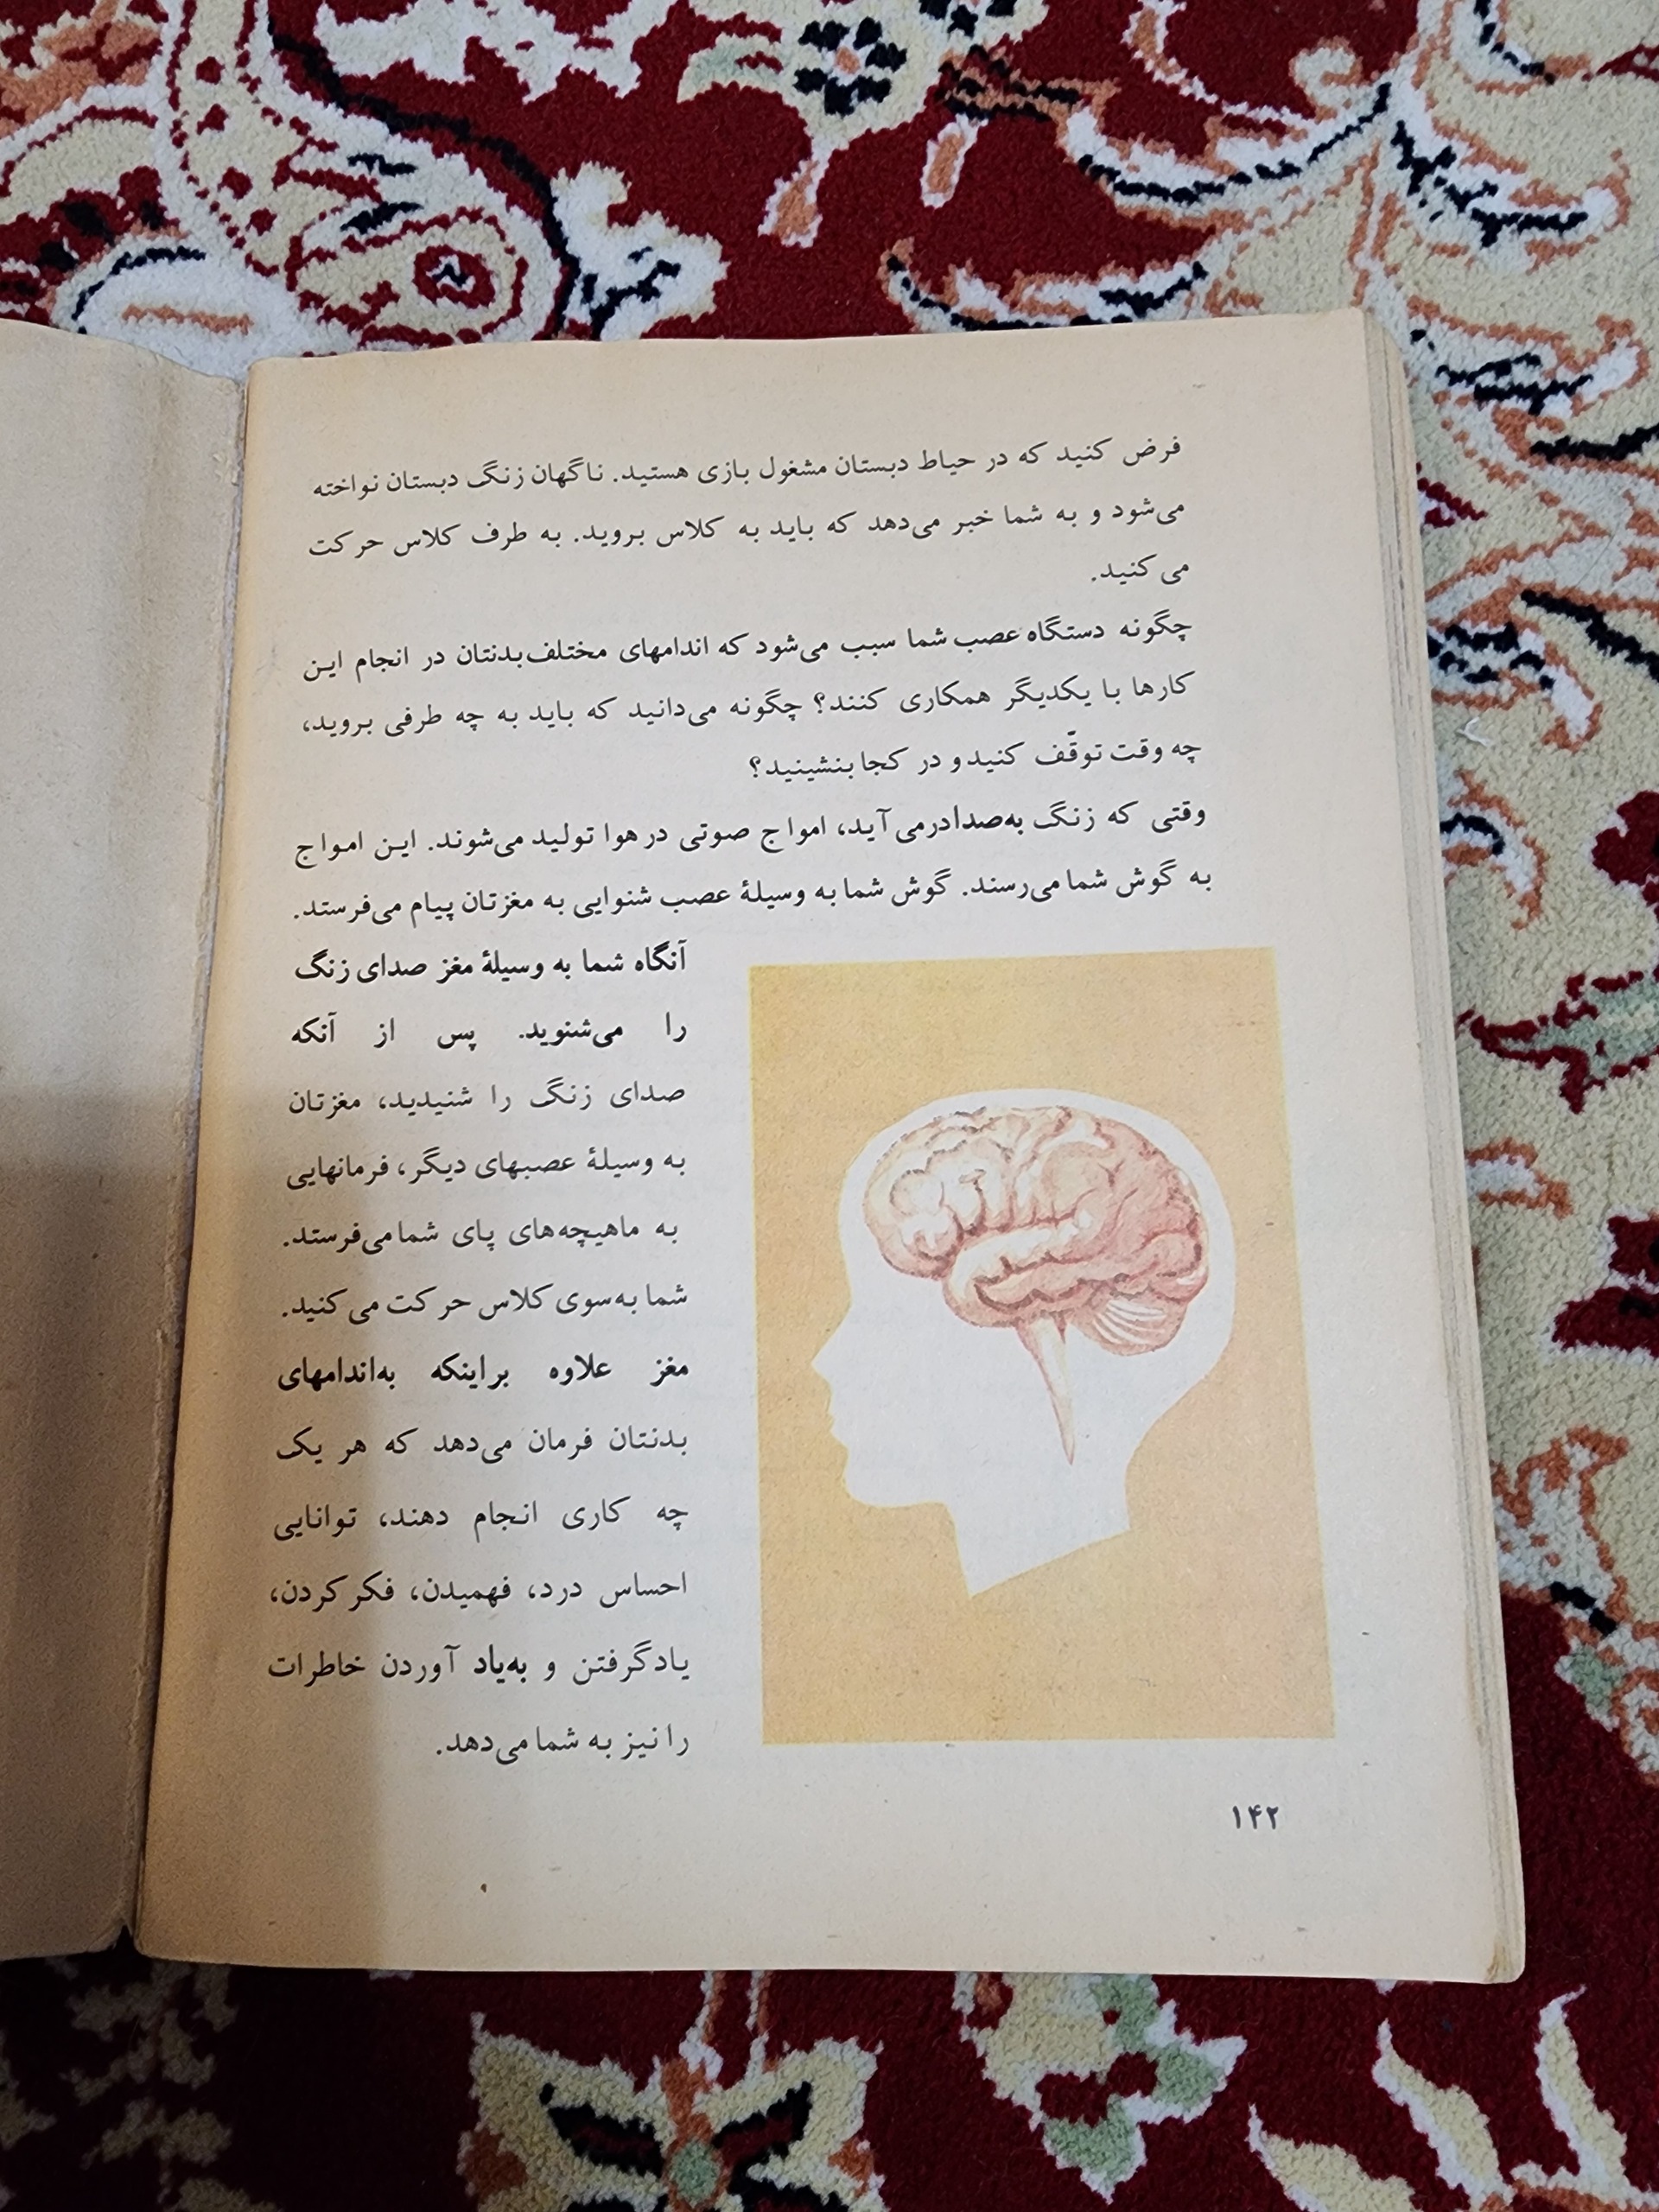 فرض کنید که در حیاط دبستان مشغول بازی هستید. ناگهان زنگ دبستان نواخته
می‌شود و به شما خبر می‌دهد که باید به کلاس بروید. به طرف کلاس حرکت
می‌کنید.
چگونه دستگاه عصب شما سبب می‌شود که اندامهای مختلف بدنتان در انجام این
کارها با یکدیگر همکاری کنند؟ چگونه می‌دانید که باید به چه طرفی بروید،
چه وقت توقّف کنید و در کجا بنشینید؟
وقتی که زنگ به‌صدا درمی‌آید، امواج صوتی در هوا تولید می‌شوند. این امواج
به گوش شما می‌رسند. گوش شما به وسیلهٔ عصب شنوایی به مغزتان پیام می‌فرستد.
آنگاه شما به وسیلهٔ مغز صدای زنگ
را می‌شنوید. پس از آنکه
صدای زنگ را شنیدید، مغزتان
به وسیلهٔ عصبهای دیگر، فرمانهایی
به ماهیچه‌های پای شما می‌فرستد.
شما به‌سوی کلاس حرکت می‌کنید.
مغز علاوه براینکه به‌اندامهای
بدنتان فرمان می‌دهد که هر یک
چه کاری انجام دهند، توانایی
احساس درد، فهمیدن، فکر کردن،
یادگرفتن و به‌یاد آوردن خاطرات
را نیز به شما می‌دهد.
۱۴۲